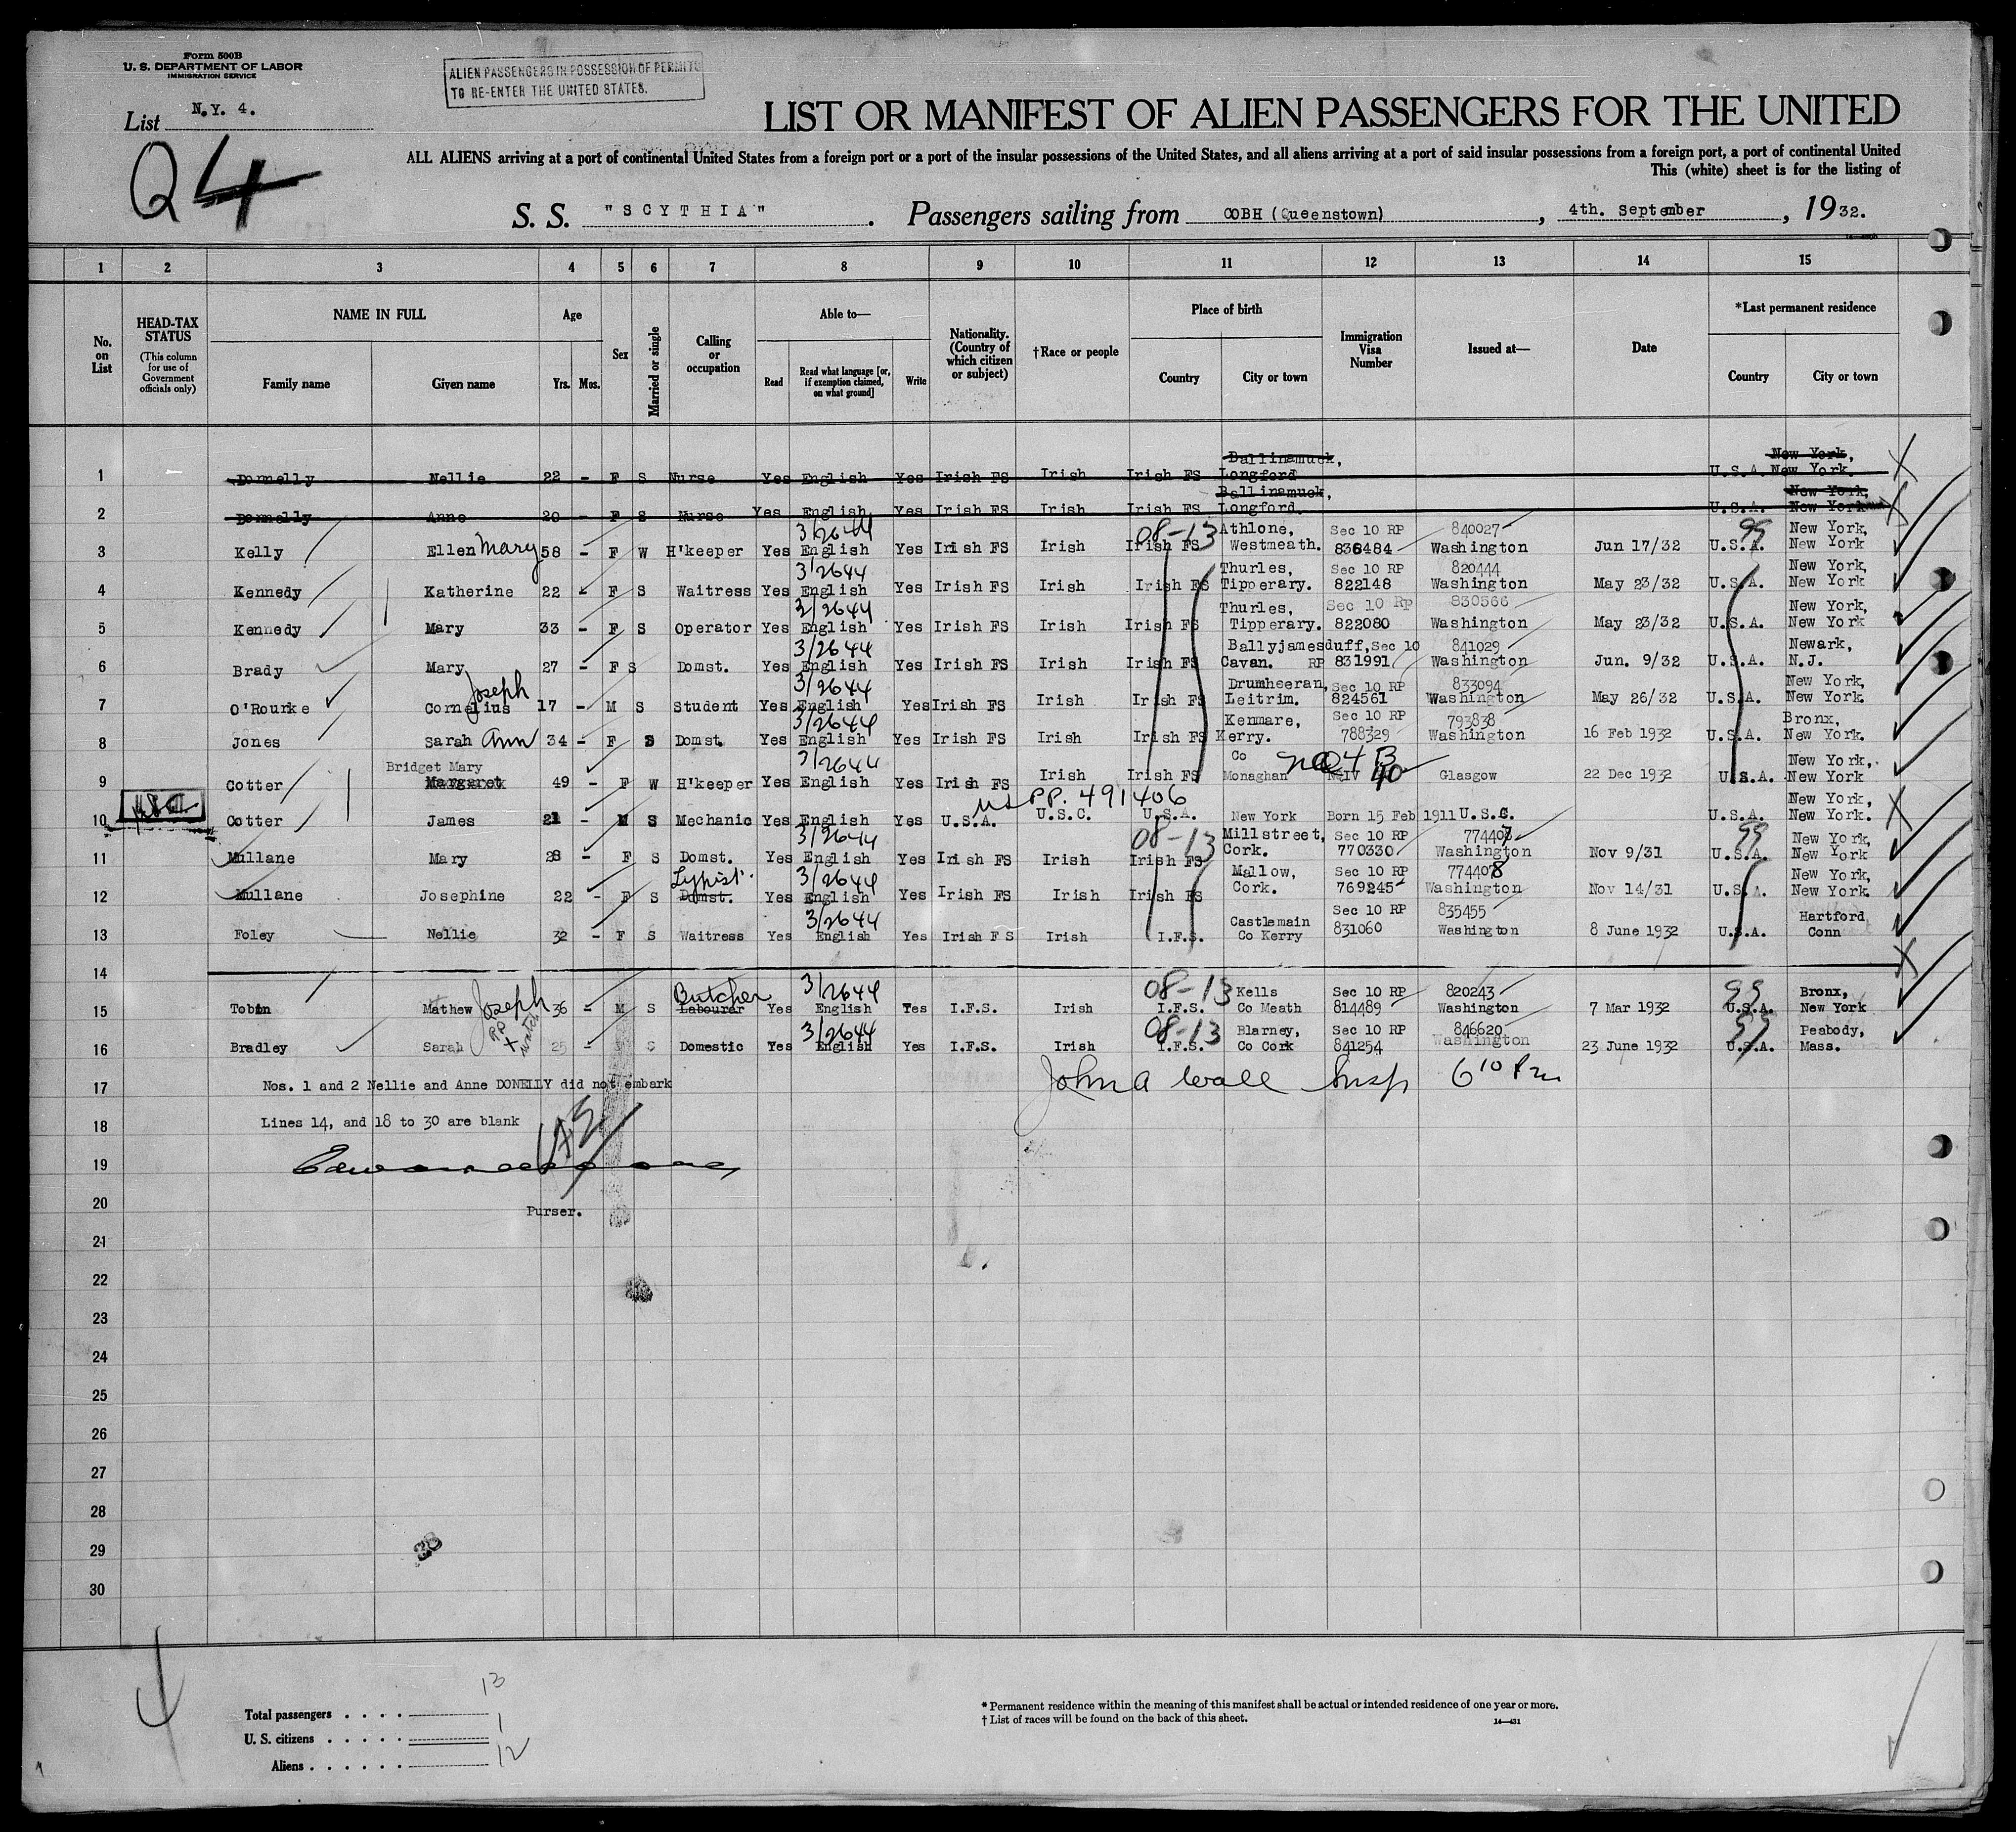 Form 500B
U. S. DEPARTMENT OF LABOR
IMMIGRATION SERVICE
ALIEN PASSENGERS IN POSSESSION OF PERMITS
TO RE-ENTER THE UNITED STATES.
List N.Y. 4.
Q4
LIST OR MANIFEST OF ALIEN PASSENGERS FOR THE UNITED
ALL ALIENS arriving at a port of continental United States from a foreign port or a port of the insular possessions of the United States, and all aliens arriving at a port of said insular possessions from a foreign port, a port of continental United
This (white) sheet is for the listing of
S. S. "SCYTHIA". Passengers sailing from COBH (Queenstown), 4th. September, 1932.
1 2 3 4 5 6 7 8 9 10 11 12 13 14 15
No. on List
HEAD-TAX STATUS (This column for use of Government officials only)
NAME IN FULL Family name Given name
Age Yrs. Mos.
Sex
Married or single
Calling or occupation
Able to— Read Read what language [or, if exemption claimed, on what ground] Write
Nationality. (Country of which citizen or subject)
†Race or people
Place of birth Country City or town
Immigration Visa Number
Issued at—
Date
*Last permanent residence Country City or town
1 Donnelly Nellie 22 - F S Nurse Yes English Yes Irish FS Irish Irish FS Ballinamuck, Longford U.S.A. New York, New York.
2 Donnelly Anne 20 - F S Nurse Yes English Yes Irish FS Irish Irish FS Ballinamuck, Longford. U.S.A. New York, New York
3 Kelly Ellen Mary 58 - F W H'keeper Yes 3/2644 English Yes Irish FS Irish 08-13 Irish FS Athlone, Westmeath. Sec 10 RP 836484 840027 Washington Jun 17/32 99 U.S.A. New York, New York
4 Kennedy Katherine 22 - F S Waitress Yes 3/2644 English Yes Irish FS Irish Irish FS Thurles, Tipperary. Sec 10 RP 822148 820444 Washington May 23/32 U.S.A. New York, New York
5 Kennedy Mary 33 - F S Operator Yes 3/2644 English Yes Irish FS Irish Irish FS Thurles, Tipperary. Sec 10 RP 822080 830566 Washington May 23/32 U.S.A. New York, New York
6 Brady Mary 27 - F S Domst. Yes 3/2644 English Yes Irish FS Irish Irish FS Ballyjamesduff, Cavan. Sec 10 RP 831991 841029 Washington Jun. 9/32 U.S.A. Newark, N.J.
7 O'Rourke Cornelius Joseph 17 - M S Student Yes 3/2644 English Yes Irish FS Irish Irish FS Drumheeran, Leitrim. Sec 10 RP 824561 833094 Washington May 26/32 U.S.A. New York, New York.
8 Jones Sarah Ann 34 - F S Domst. Yes 3/2644 English Yes Irish FS Irish Irish FS Kenmare, Kerry. Sec 10 RP 788329 793838 Washington 16 Feb 1932 U.S.A. Bronx, New York.
9 Cotter Bridget Mary Margaret 49 - F W H'keeper Yes 3/2644 English Yes Irish FS Irish Irish FS Co Monaghan 4 B 40 Glasgow 22 Dec 1932 U.S.A. New York, New York
10 Cotter James 21 - M S Mechanic Yes English Yes U.S.A. US PP. 491406 U.S.C. U.S.A. New York Born 15 Feb 1911 U.S.C. U.S.A. New York, New York.
11 Mullane Mary 28 - F S Domst. Yes 3/2644 English Yes Irish FS Irish 08-13 Irish FS Millstreet, Cork. Sec 10 RP 770330 774407 Washington Nov 9/31 99 U.S.A. New York, New York
12 Mullane Josephine 22 - F S Typist Domst. Yes 3/2644 English Yes Irish FS Irish Irish FS Mallow, Cork. Sec 10 RP 769245 774408 Washington Nov 14/31 U.S.A. New York, New York.
13 Foley Nellie 32 - F S Waitress Yes 3/2644 English Yes Irish F S Irish I.F.S. Castlemain Co Kerry Sec 10 RP 831060 835455 Washington 8 June 1932 U.S.A. Hartford Conn
14
15 Tobin Mathew Joseph 36 - M S Butcher Labourer Yes 3/2644 English Yes I.F.S. Irish 08-13 I.F.S. Kells Co Meath Sec 10 RP 814489 820243 Washington 7 Mar 1932 99 U.S.A. Bronx, New York
16 Bradley Sarah 25 - S Domestic Yes 3/2644 English Yes I.F.S. Irish 08-13 I.F.S. Blarney, Co Cork Sec 10 RP 841254 846620 Washington 23 June 1932 99 U.S.A. Peabody, Mass.
17 Nos. 1 and 2 Nellie and Anne DONELLY did not embark
John A Wall Insp 6 10 Pm
18 Lines 14, and 18 to 30 are blank
19
20 Purser.
21
22
23
24
25
26
27
28
29
30
Total passengers . . . . 13
U. S. citizens . . . . . 1
Aliens . . . . . . 12
* Permanent residence within the meaning of this manifest shall be actual or intended residence of one year or more.
† List of races will be found on the back of this sheet.